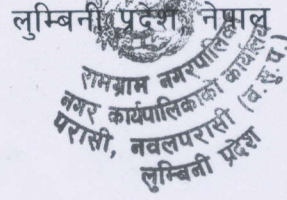 लुम्बिनी प्रदेश, नेपाल
रामग्राम नगरपालिका
नगर कार्यपालिकाको कार्यालय
परासी, नवलपरासी (ब.सु.प.)
लुम्बिनी प्रदेश